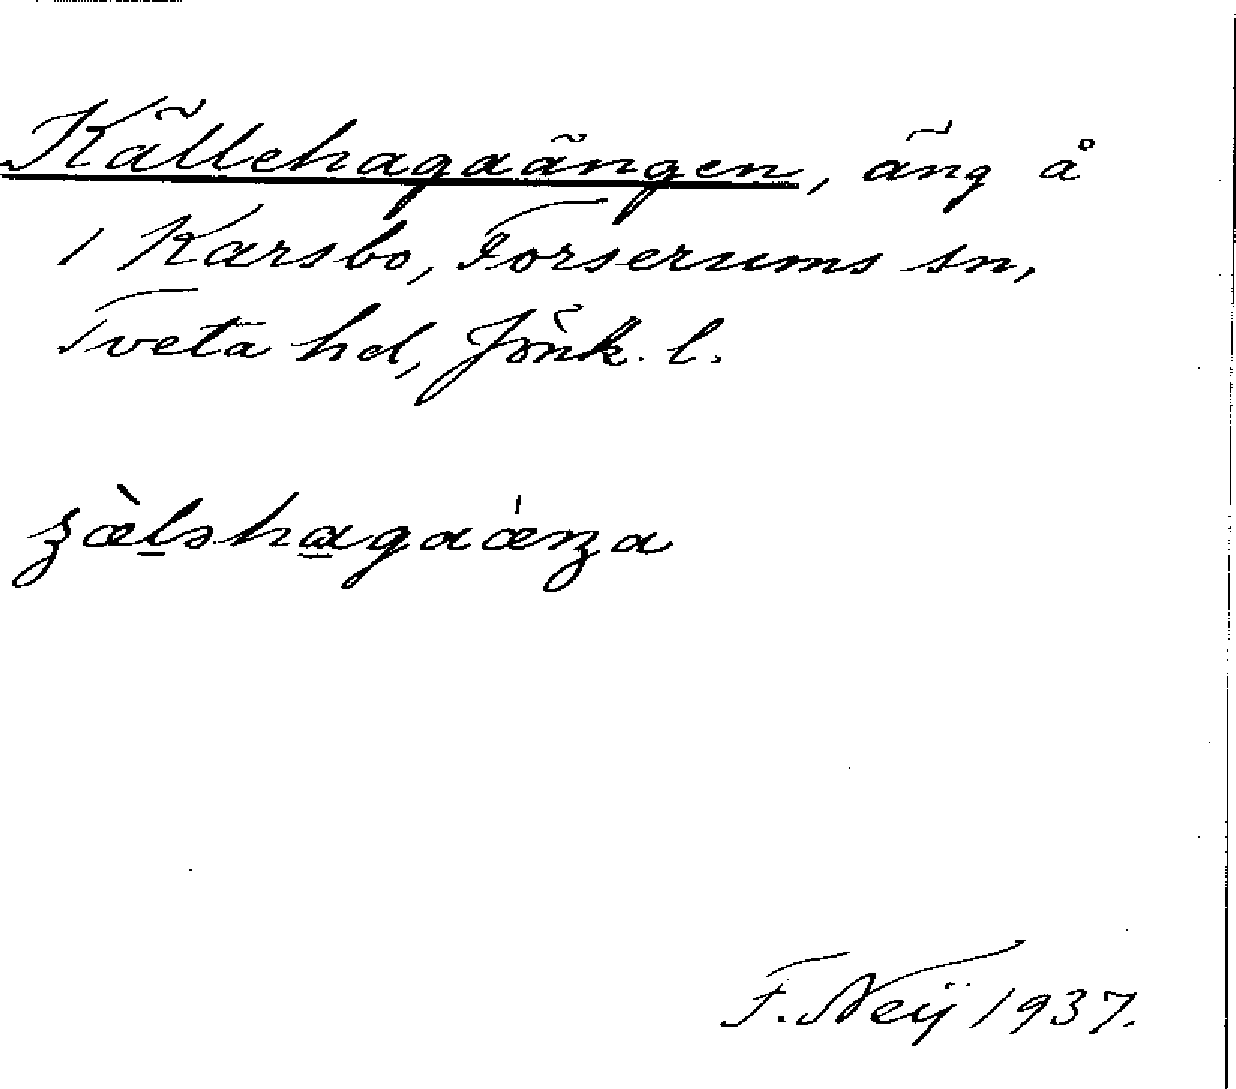 Källehagaängen, äng å
1 Karsbo, Forserums sn,
Tveta hd, Jönk. l.
F. Neÿ 1937.